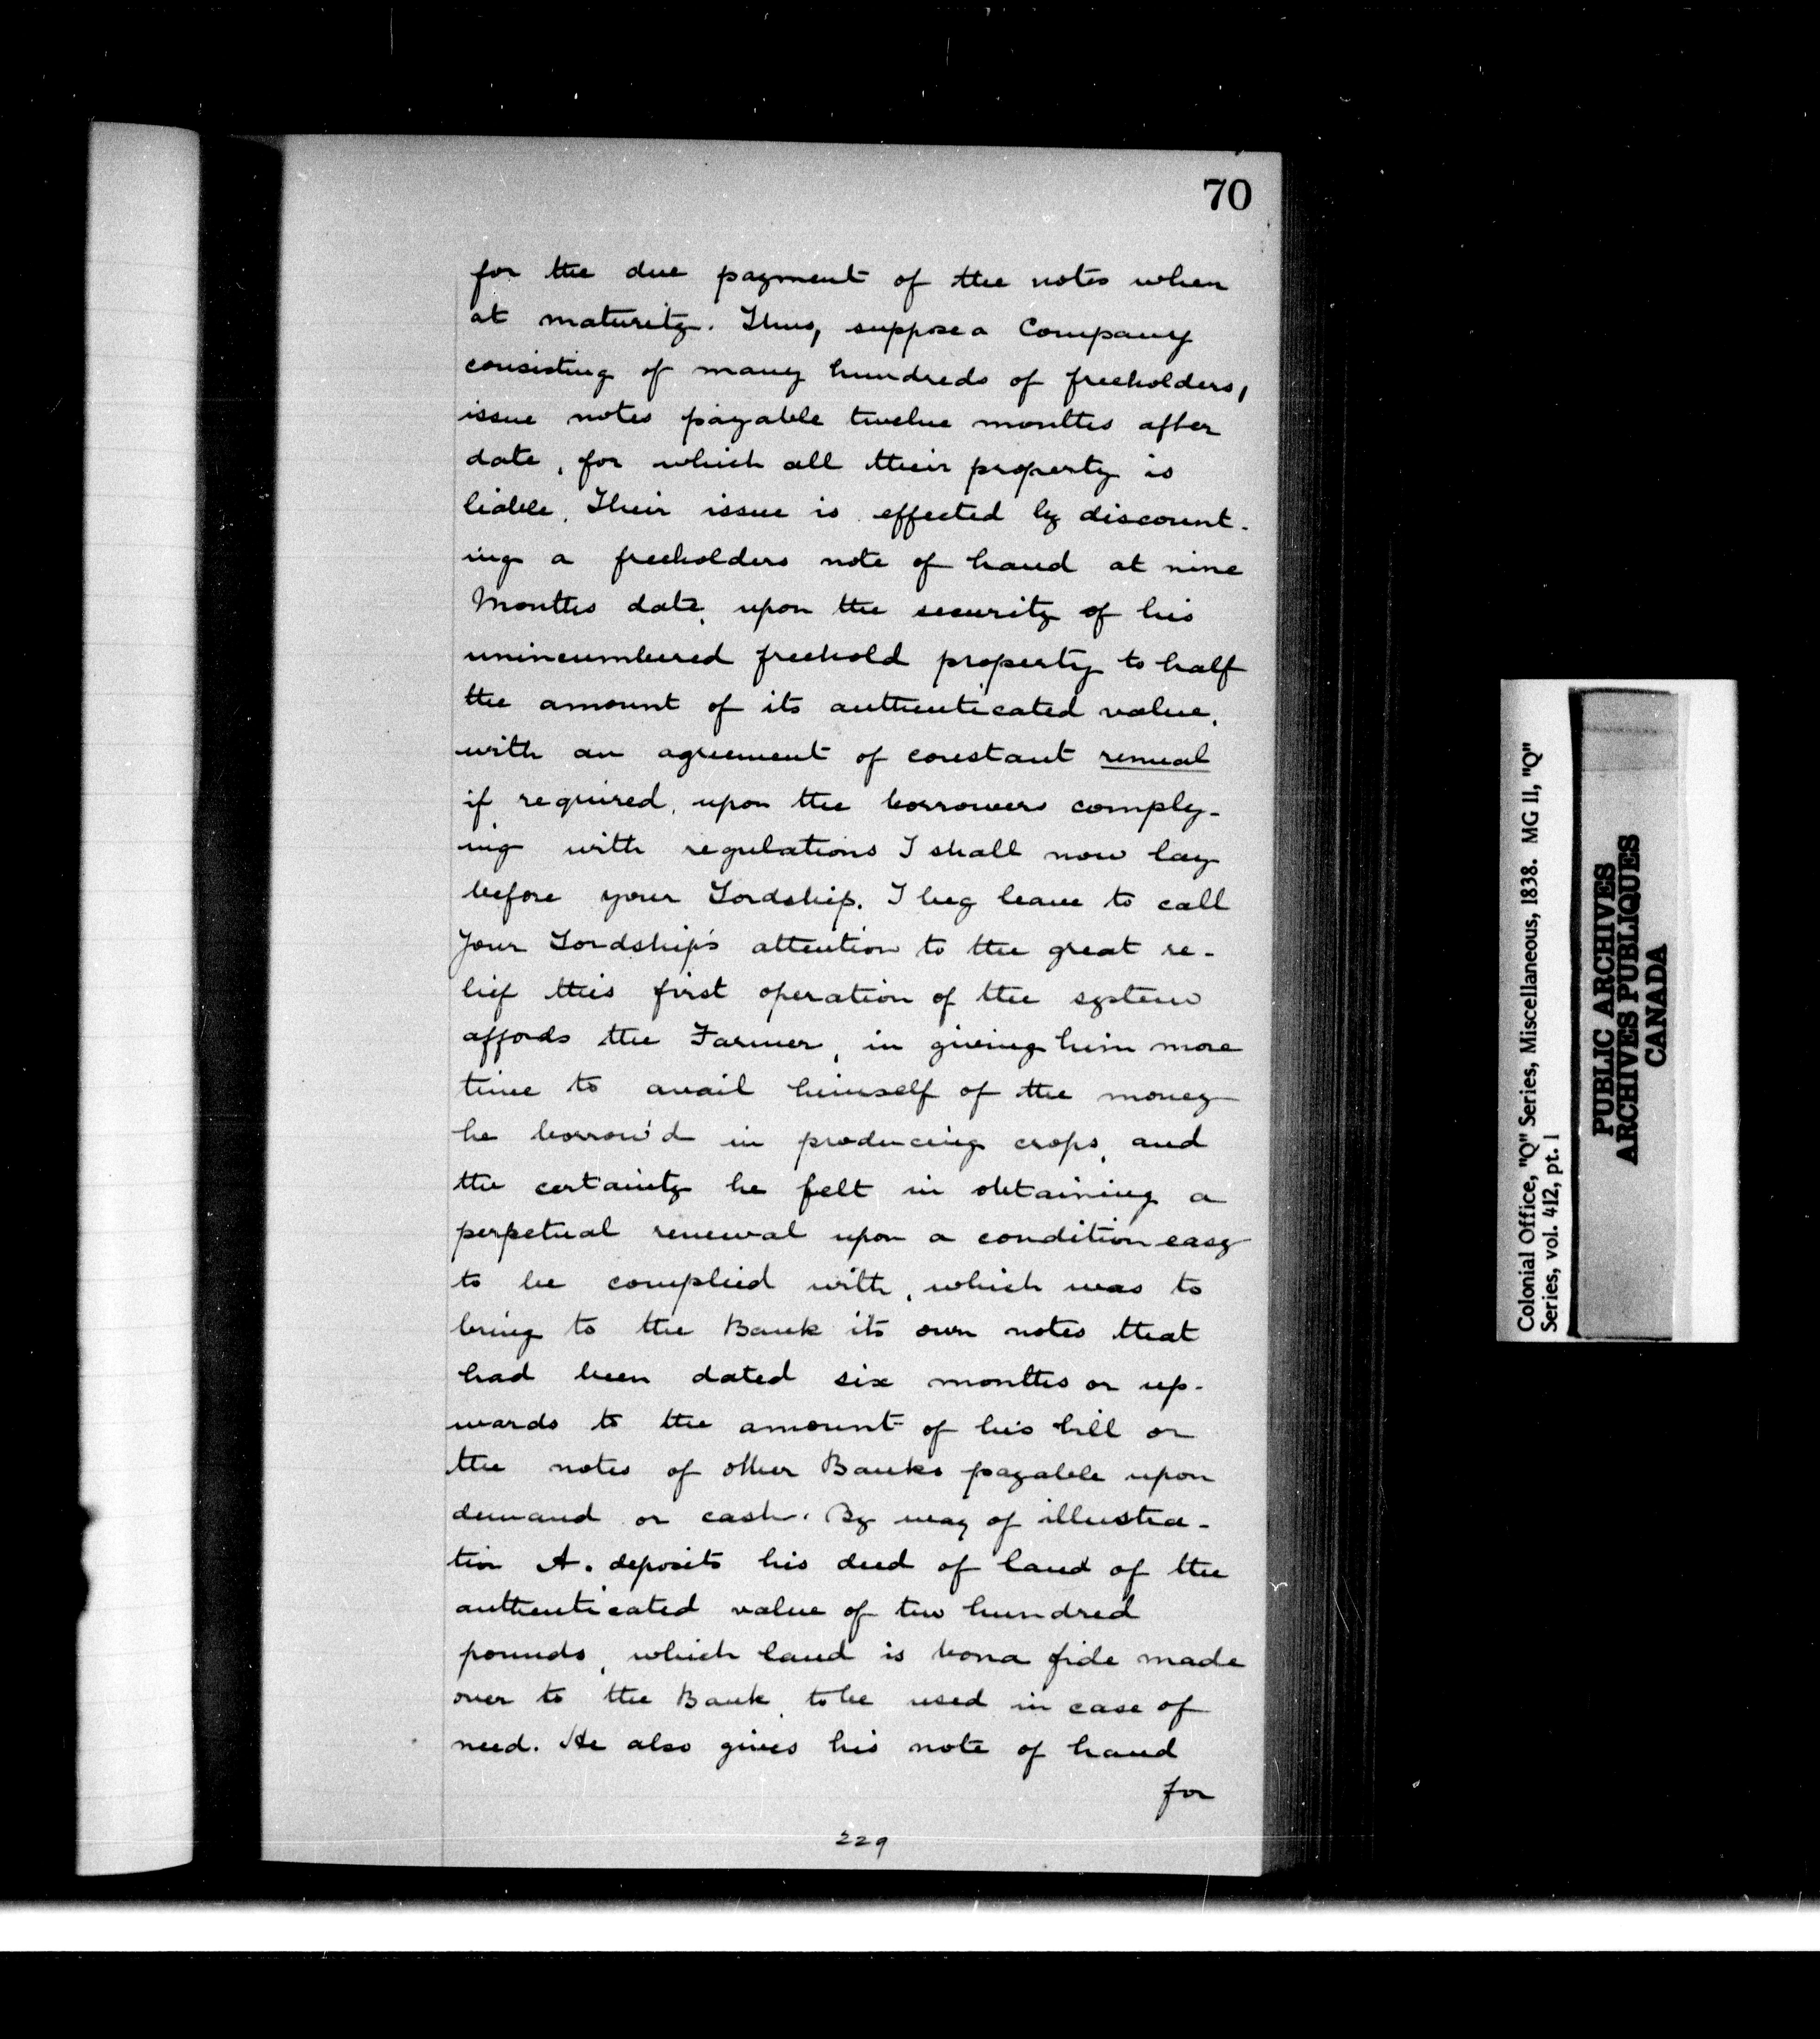 70
for the due payment of the notes when
at maturity. Thus, suppose a Company
consisting of many hundreds of freeholders,
issue notes payable twelve months after
date, for which all their property is
liable. Their issue is effected by discount-
ing a freeholders note of hand at nine
Months date, upon the security of his
unincumbered freehold property to half
the amount of its authenticated value,
with an agreement of constant renewal
if required, upon the borrowers comply-
ing with regulations I shall now lay
before your Lordship. I beg leave to call
Your Lordship's attention to the great re-
lief this first operation of the system
affords the Farmer, in giving him more
time to avail himself of the money
he borrow'd in producing crops, and
the certainty he felt in obtaining a
perpetual renewal upon a condition easy
to be complied with, which was to
bring to the Bank its own notes that
had been dated six months or up-
wards to the amount of his bill or
the notes of other Banks payable upon
demand or cash. By way of illustra-
tion A. deposits his deed of land of the
authenticated value of two hundred
pounds, which land is bona fide made
over to the Bank, to be used in case of
need. He also gives his note of hand
for
229
Colonial Office, "Q" Series, Miscellaneous, 1838. MG 11, "Q"
Series, vol. 412, pt. 1
PUBLIC ARCHIVES
ARCHIVES PUBLIQUES
CANADA